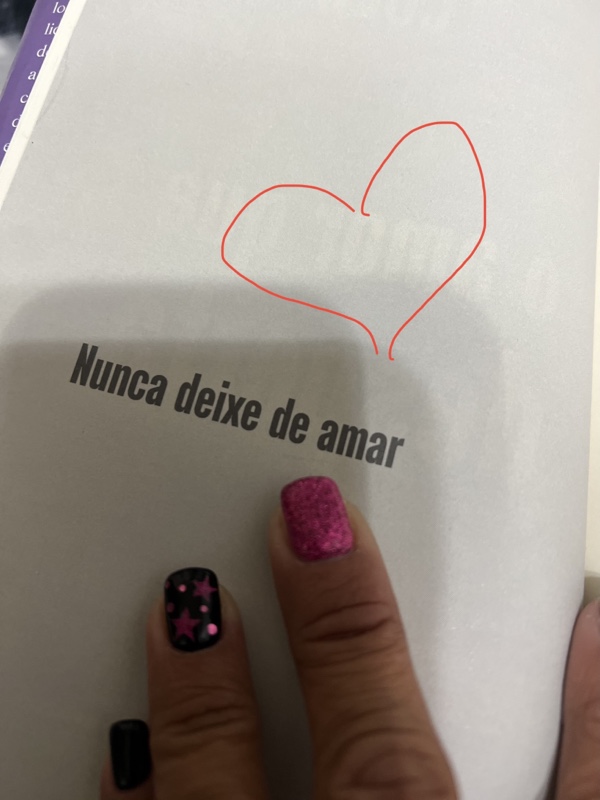 lo
Nunca deixe de amar